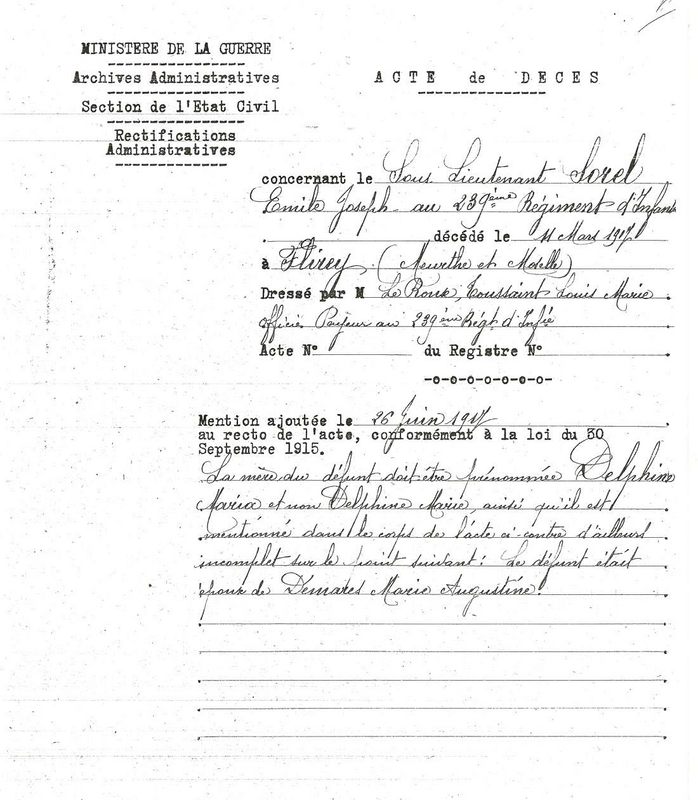 MINISTERE DE LA GUERRE
Archives Administratives
Section de l'Etat Civil
Rectifications
Administratives
ACTE de DECES
concernant le Sous Lieutenant Sorel
Emile Joseph au 239ème Régiment d'Infant
décédé le 11 Mars 1917
à Flirey (Meurthe et Moselle)
Dressé par M Le Roux, Toussaint Louis Marie
officier Payeur au 239ème Régt d'Infie
Acte N° du Registre N°
-o-o-o-o-o-o-o-
Mention ajoutée le 26 Juin 1917
au recto de l'acte, conformément à la loi du 30
Septembre 1915.
La mère du défunt doit être prénommée Delphine
Maria et non Delphine Marie, ainsi qu'il est
mentionné dans le corps de l'acte ci-contre d'ailleurs
incomplet sur le point suivant: Le défunt était
époux de Demares Marie Augustine.